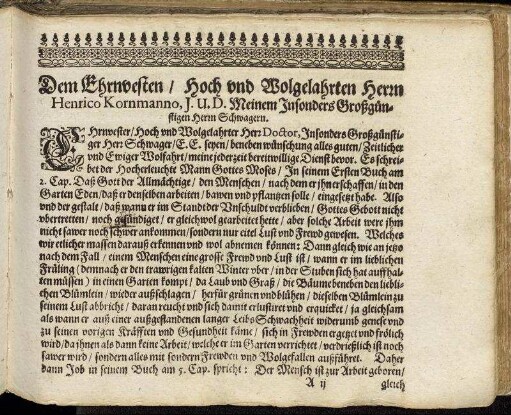 Dem Ehrnvesten / Hoch vnd Wolgelahrten Herrn
Henrico Kornmanno, J. U. D. Meinem Insonders Großgün-
stigen Herrn Schwagern.
EHrnvester / Hoch vnd Wolgelahrter Her: Doctor, Insonders Großgünsti-
ger Her: Schwager / E. E. seyen / beneben wünschung alles guten / Zeitlicher
vnd Ewiger Wolfahrt / meine jederzeit bereitwillige Dienst bevor. Es schrei-
bet der Hocherleuchte Mann Gottes Moses / In seinem Ersten Buch am
2. Cap. Daß Gott der Allmächtige / den Menschen / nach dem er jhn erschaffen / in den
Garten Eden / daß er denselben arbeiten / bawen vnd pflantzen solle / eingesetzt habe. Also
vnd der gestalt / daß wann er im Standt der Vnschuldt verblieben / Gottes Gebott nicht
vbertretten / noch gesündiget / er gleichwol gearbeitet hette / aber solche Arbeit were jhm
nicht sawer noch schwer ankommen / sondern nur eitel Lust vnd Frewd gewesen. Welches
wir etlicher massen darauß erkennen vnd wol abnemen können: Dann gleich wie an jetzo
nach dem Fall / einem Menschen eine grosse Frewd vnd Lust ist / wann er im lieblichen
Früling (demnach er den trawrigen kalten Winter vber / in der Stuben sich hat auffhal-
ten müssen) in einen Garten kompt / da Laub vnd Graß / die Bäume beneben den liebli-
chen Blümlein / wieder außschlagen / herfür grünen vnd blühen / dieselben Blümlein zu
seinem Lust abbricht / daran reucht vnd sich damit erlustiret vnd erquicket / ja gleichsam
als wann er auß einer außgestandenen langer Leibs Schwachheit widerumb genese vnd
zu seinen vorigen Kräfften vnd Gesundheit käme / sich in Frewden ergetzet vnd frölich
wird / da jhnen als dann keine Arbeit / welche er im Garten verrichtet / verdrießlich ist noch
sawer wird / sondern alles mit sondern Frewden vnd Wolgefallen außführet. Daher
dann Job in seinem Buch am 5. Cap. spricht: Der Mensch ist zur Arbeit geboren /
A ij
gleich